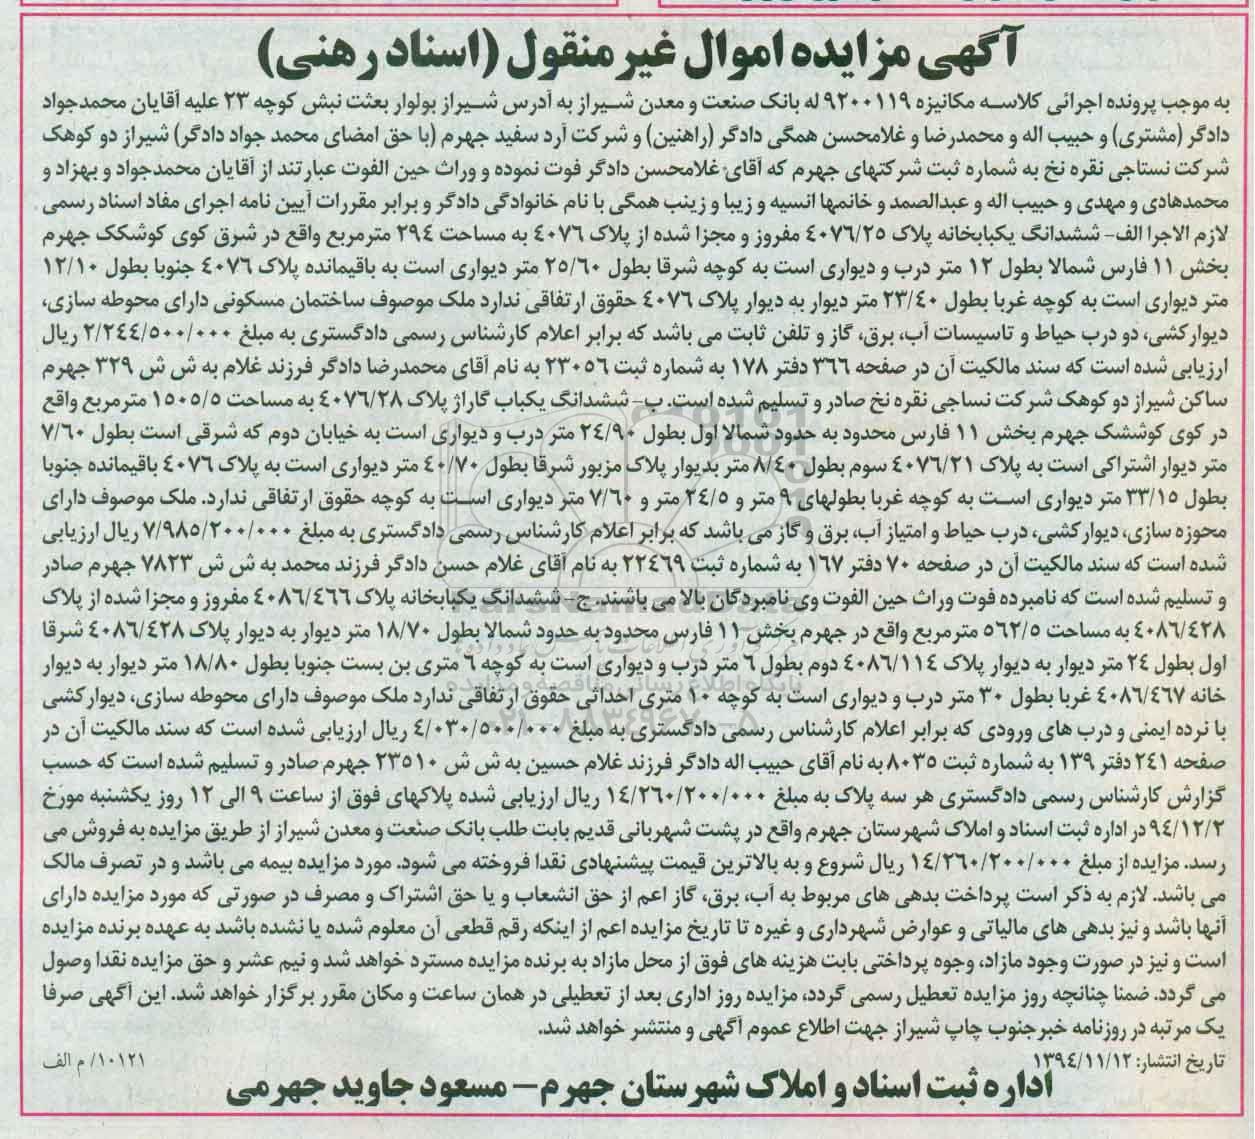 آگهی مزایده اموال غیر منقول (اسناد رهنی)
به موجب پرونده اجرائی کلاسه مکانیزه ۹۲۰۰۱۱۹ له بانک صنعت و معدن شیراز به آدرس شیراز بولوار بعثت نبش کوچه ۲۳ علیه آقایان محمدجواد
دادگر (مشتری) و حبیب اله و محمدرضا و غلامحسن همگی دادگر (راهنین) و شرکت آرد سفید جهرم (با حق امضای محمد جواد دادگر) شیراز دو کوهک
شرکت نستاجی نقره نخ به شماره ثبت شرکتهای جهرم که آقای غلامحسن دادگر فوت نموده و وراث حین الفوت عبارتند از آقایان محمدجواد و بهزاد و
محمدهادی و مهدی و حبیب اله و عبدالصمد و خانمها انسیه و زیبا و زینب همگی با نام خانوادگی دادگر و برابر مقررات آیین نامه اجرای مفاد اسناد رسمی
لازم الاجرا الف- ششدانگ یکبابخانه پلاک ۴۰۷۶/۲۵ مفروز و مجزا شده از پلاک ۴۰۷۶ به مساحت ۲۹۴ مترمربع واقع در شرق کوی کوشکک جهرم
بخش ۱۱ فارس شمالا بطول ۱۲ متر درب و دیواری است به کوچه شرقا بطول ۲۵/۶۰ متر دیواری است به باقیمانده پلاک ۴۰۷۶ جنوبا بطول ۱۲/۱۰
متر دیواری است به کوچه غربا بطول ۲۳/۴۰ متر دیوار به دیوار پلاک ۴۰۷۶ حقوق ارتفاقی ندارد ملک موصوف ساختمان مسکونی دارای محوطه سازی،
دیوارکشی، دو درب حیاط و تاسیسات آب، برق، گاز و تلفن ثابت می باشد که برابر اعلام کارشناس رسمی دادگستری به مبلغ ۲/۲۴۴/۵۰۰/۰۰۰ ریال
ارزیابی شده است که سند مالکیت آن در صفحه ۳۶۶ دفتر ۱۷۸ به شماره ثبت ۲۳۰۵۶ به نام آقای محمدرضا دادگر فرزند غلام به ش ش ۳۲۹ جهرم
ساکن شیراز دو کوهک شرکت نساجی نقره نخ صادر و تسلیم شده است. ب- ششدانگ یکباب گاراژ پلاک ۴۰۷۶/۲۸ به مساحت ۱۵۰۵/۵ مترمربع واقع
در کوی کوششک جهرم بخش ۱۱ فارس محدود به حدود شمالا اول بطول ۲۴/۹۰ متر درب و دیواری است به خیابان دوم که شرقی است بطول ۷/۶۰
متر دیوار اشتراکی است به پلاک ۴۰۷۶/۲۱ سوم بطول ۸/۴۰ متر بدیوار پلاک مزبور شرقا بطول ۴۰/۷۰ متر دیواری است به پلاک ۴۰۷۶ باقیمانده جنوبا
بطول ۳۳/۱۵ متر دیواری است به کوچه غربا بطولهای ۹ متر و ۲۴/۵ متر و ۷/۶۰ متر دیواری است به کوچه حقوق ارتفاقی ندارد. ملک موصوف دارای
محوزه سازی، دیوارکشی، درب حیاط و امتیاز آب، برق و گاز می باشد که برابر اعلام کارشناس رسمی دادگستری به مبلغ ۷/۹۸۵/۲۰۰/۰۰۰ ریال ارزیابی
شده است که سند مالکیت آن در صفحه ۷۰ دفتر ۱۶۷ به شماره ثبت ۲۲۴۶۹ به نام آقای غلام حسن دادگر فرزند محمد به ش ش ۷۸۲۳ جهرم صادر
و تسلیم شده است که نامبرده فوت وراث حین الفوت وی نامبردگان بالا می باشند. ج- ششدانگ یکبابخانه پلاک ۴۰۸۶/۴۶۶ مفروز و مجزا شده از پلاک
۴۰۸۶/۴۲۸ به مساحت ۵۶۲/۵ مترمربع واقع در جهرم بخش ۱۱ فارس محدود به حدود شمالا بطول ۱۸/۷۰ متر دیوار به دیوار پلاک ۴۰۸۶/۴۲۸ شرقا
اول بطول ۲۴ متر دیوار به دیوار پلاک ۴۰۸۶/۱۱۴ دوم بطول ۶ متر درب و دیواری است به کوچه ۶ متری بن بست جنوبا بطول ۱۸/۸۰ متر دیوار به دیوار
خانه ۴۰۸۶/۴۶۷ غربا بطول ۳۰ متر درب و دیواری است به کوچه ۱۰ متری احداثی حقوق ارتفاقی ندارد ملک موصوف دارای محوطه سازی، دیوارکشی
با نرده ایمنی و درب های ورودی که برابر اعلام کارشناس رسمی دادگستری به مبلغ ۴/۰۳۰/۵۰۰/۰۰۰ ریال ارزیابی شده است که سند مالکیت آن در
صفحه ۲۴۱ دفتر ۱۳۹ به شماره ثبت ۸۰۳۵ به نام آقای حبیب اله دادگر فرزند غلام حسین به ش ش ۲۳۵۱۰ جهرم صادر و تسلیم شده است که حسب
گزارش کارشناس رسمی دادگستری هر سه پلاک به مبلغ ۱۴/۲۶۰/۲۰۰/۰۰۰ ریال ارزیابی شده پلاکهای فوق از ساعت ۹ الی ۱۲ روز یکشنبه مورخ
۹۴/۱۲/۲ در اداره ثبت اسناد و املاک شهرستان جهرم واقع در پشت شهربانی قدیم بابت طلب بانک صنعت و معدن شیراز از طریق مزایده به فروش می
رسد. مزایده از مبلغ ۱۴/۲۶۰/۲۰۰/۰۰۰ ریال شروع و به بالاترین قیمت پیشنهادی نقدا فروخته می شود. مورد مزایده بیمه می باشد و در تصرف مالک
می باشد. لازم به ذکر است پرداخت بدهی های مربوط به آب، برق، گاز اعم از حق انشعاب و یا حق اشتراک و مصرف در صورتی که مورد مزایده دارای
آنها باشد و نیز بدهی های مالیاتی و عوارض شهرداری و غیره تا تاریخ مزایده اعم از اینکه رقم قطعی آن معلوم شده یا نشده باشد به عهده برنده مزایده
است و نیز در صورت وجود مازاد، وجوه پرداختی بابت هزینه های فوق از محل مازاد به برنده مزایده مسترد خواهد شد و نیم عشر و حق مزایده نقدا وصول
می گردد. ضمنا چنانچه روز مزایده تعطیل رسمی گردد، مزایده روز اداری بعد از تعطیلی در همان ساعت و مکان مقرر برگزار خواهد شد. این آگهی صرفا
یک مرتبه در روزنامه خبرجنوب چاپ شیراز جهت اطلاع عموم آگهی و منتشر خواهد شد.
تاریخ انتشار: ۱۳۹٤/۱۱/۱۲
۱۰۱۲۱/ م الف
اداره ثبت اسناد و املاک شهرستان جهرم- مسعود جاوید جهرمی